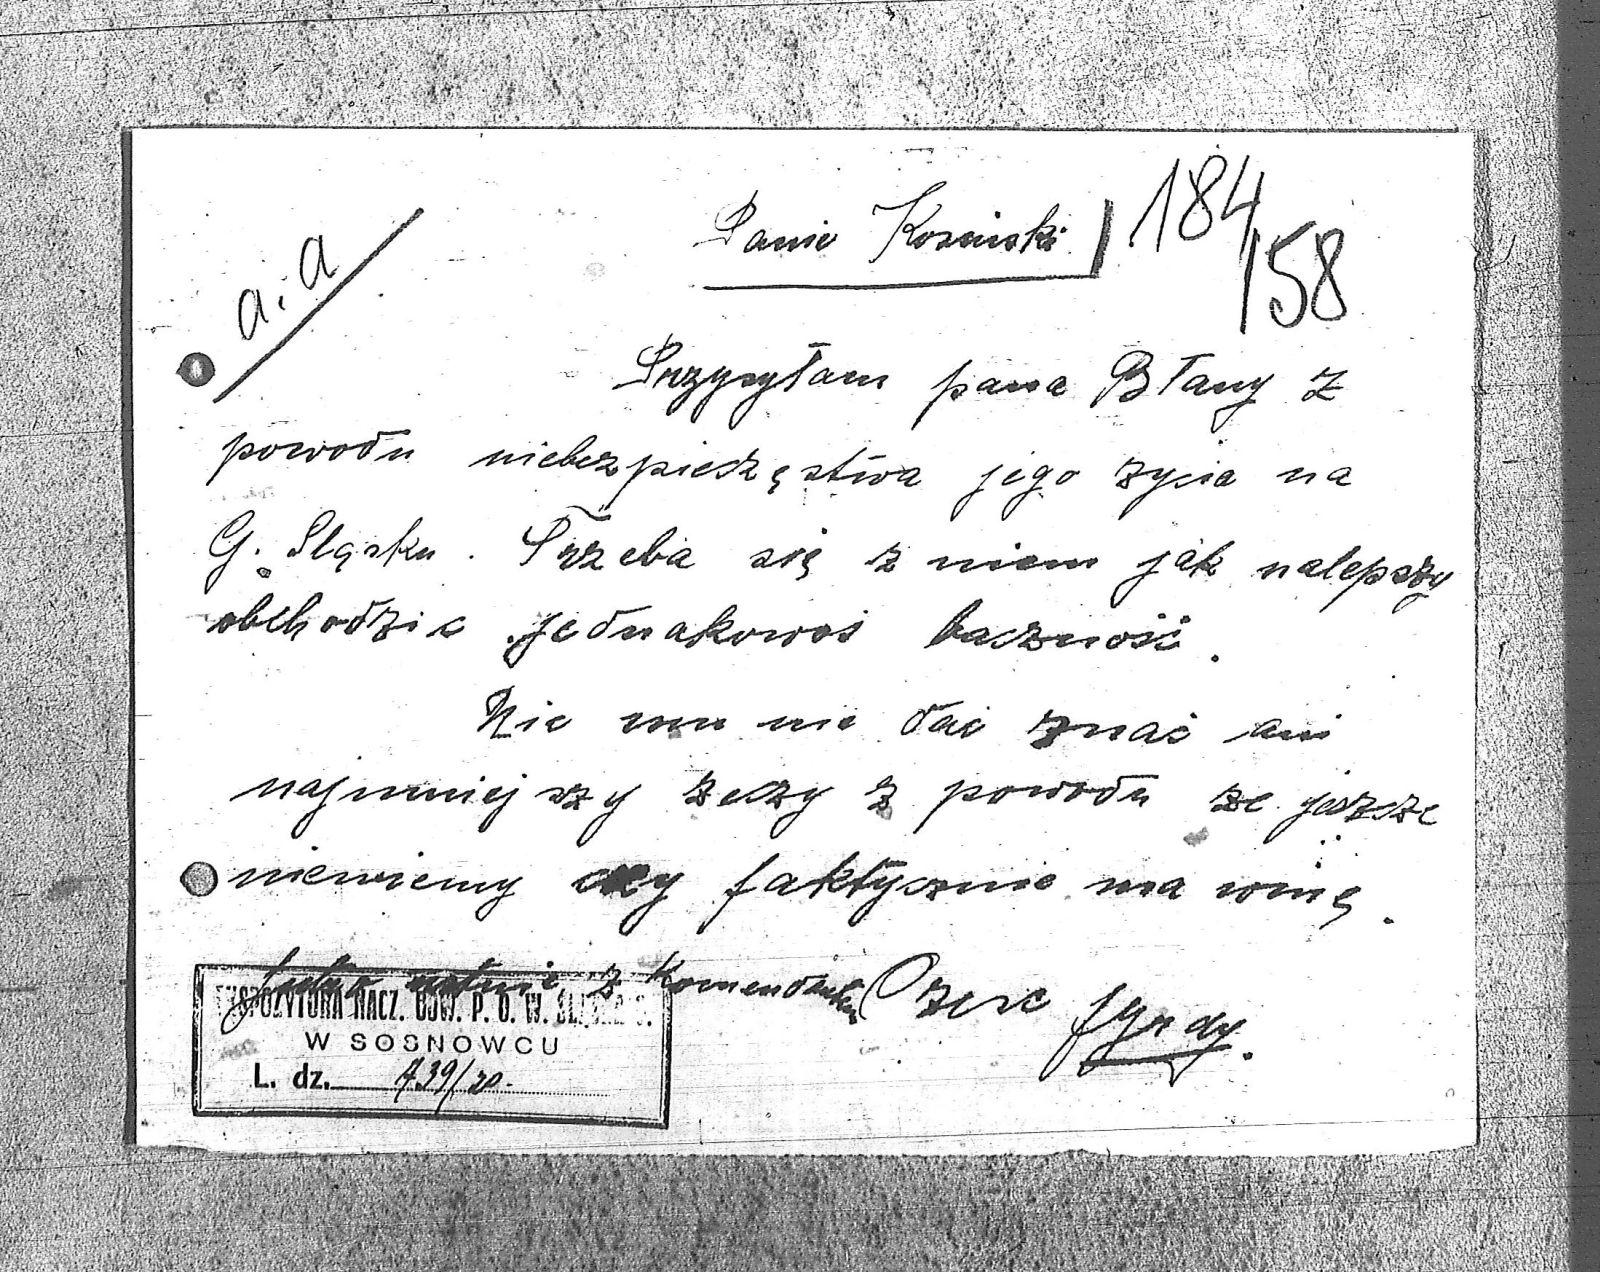 a. a
Panie Kosinski
184
/58
Przysyłam pana Błany z
powodu niebezpieczęstwa jego zycia na
G. Sląsku. Trzeba się z niem jak nalepszy
obchodzic jednakowoś baczność.
Nic mu nie dać znać ani
najmniejszy zeczy z powodu ze jeszcze
niewiemy czy faktycznie ma winę.
z Komendantem Czesc
EKSPOZYTURA NACZ. DOW. P. O. W. ŚLĄSK G.
W SOSNOWCU
L. dz. A39/20.